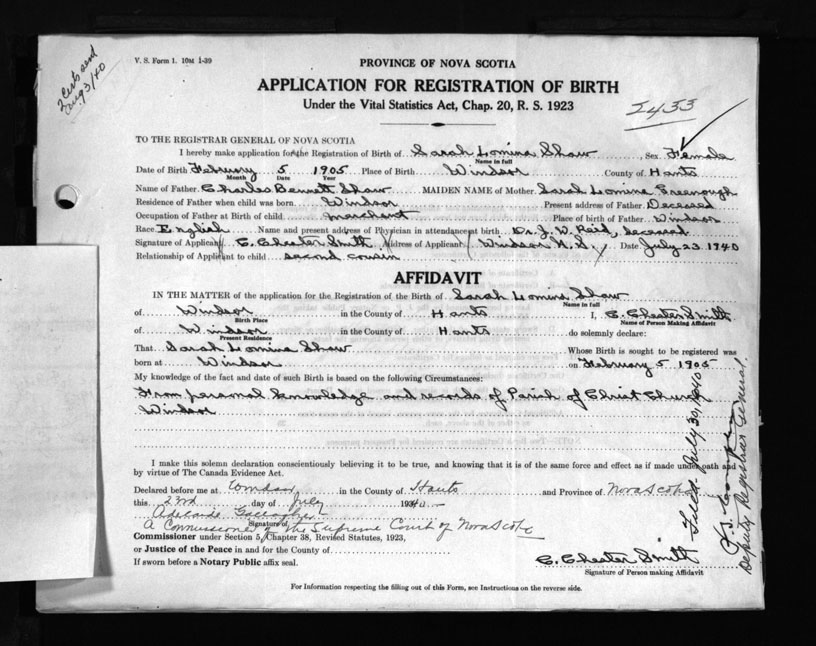 2 certs send
Aug 3/40
V. S. Form 1. 10M 1-39
PROVINCE OF NOVA SCOTIA
APPLICATION FOR REGISTRATION OF BIRTH
Under the Vital Statistics Act, Chap. 20, R. S. 1923
2433
TO THE REGISTRAR GENERAL OF NOVA SCOTIA
I hereby make application for the Registration of Birth of Sarah Lomina Shaw, Sex Female
Name in full
Date of Birth February 5 1905 Place of Birth Windsor County of Hants
Month Date Year
Name of Father Charles Bennett Shaw MAIDEN NAME of Mother Sarah Lomina Greenough
Residence of Father when child was born Windsor Present address of Father Deceased
Occupation of Father at Birth of child merchant Place of birth of Father Windsor
Race English Name and present address of Physician in attendance at birth Dr. J. W. Reid, deceased
Signature of Applicant C. Chester Smith Address of Applicant Windsor N. S. Date July 23 1940
Relationship of Applicant to child second cousin
AFFIDAVIT
IN THE MATTER of the application for the Registration of the Birth of Sarah Lomina Shaw
Name in full
of Windsor in the County of Hants I, C. Chester Smith
Birth Place Name of Person Making Affidavit
of Windsor in the County of Hants do solemnly declare:
Present Residence
That Sarah Lomina Shaw Whose Birth is sought to be registered was
born at Windsor on February 5 1905
My knowledge of the fact and date of such Birth is based on the following Circumstances:
From personal knowledge and records of Parish of Christ Church
Windsor
I make this solemn declaration conscientiously believing it to be true, and knowing that it is of the same force and effect as if made under oath and
by virtue of The Canada Evidence Act.
Declared before me at Windsor in the County of Hants and Province of Nova Scotia
this 23rd day of July 1940
Adelaide Gallagher
Signature of
A Commissioner of the Supreme Court of Nova Scotia
Commissioner under Section 5, Chapter 38, Revised Statutes, 1923,
or Justice of the Peace in and for the County of
If sworn before a Notary Public affix seal.
C. Chester Smith
Signature of Person making Affidavit
For Information respecting the filling out of this Form, see Instructions on the reverse side.
Filed July 30, 1940
Deputy Registrar General.